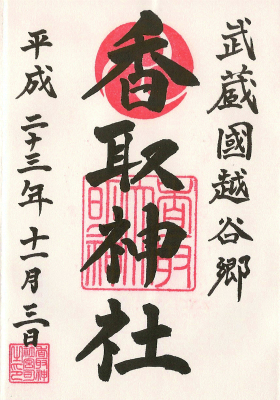 武蔵國越谷郷
香取神社
平成二十三年十一月三日
香取大明神